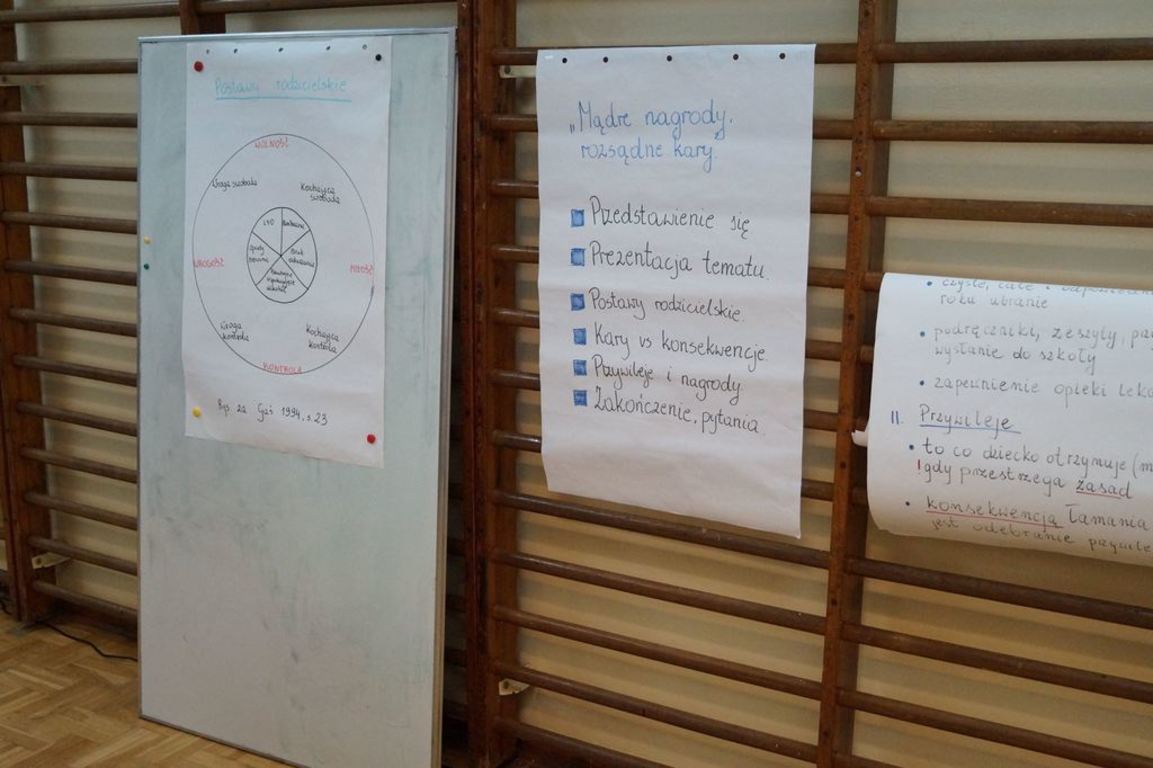 Postawy rodzicielskie
WOLNOŚĆ
Wroga swoboda
Kochająca
swoboda
WROGOŚĆ
MIŁOŚĆ
Wroga
kontrola
Kochająca
kontrola
KONTROLA
Rys. za Gaś 1994, s.23
„Mądre nagrody,
rozsądne kary”
Przedstawienie się
Prezentacja tematu.
Postawy rodzicielskie.
Kary vs konsekwencje.
Przywileje i nagrody
Zakończenie, pytania.
• czyste, całe i
roku ubranie
• podręczniki, zeszyty,
wysłanie do szkoły
• zapewnienie opieki
II. Przywileje
• to co dziecko otrzymuje
! gdy przestrzega zasad
• konsekwencją łamania
jest odebranie